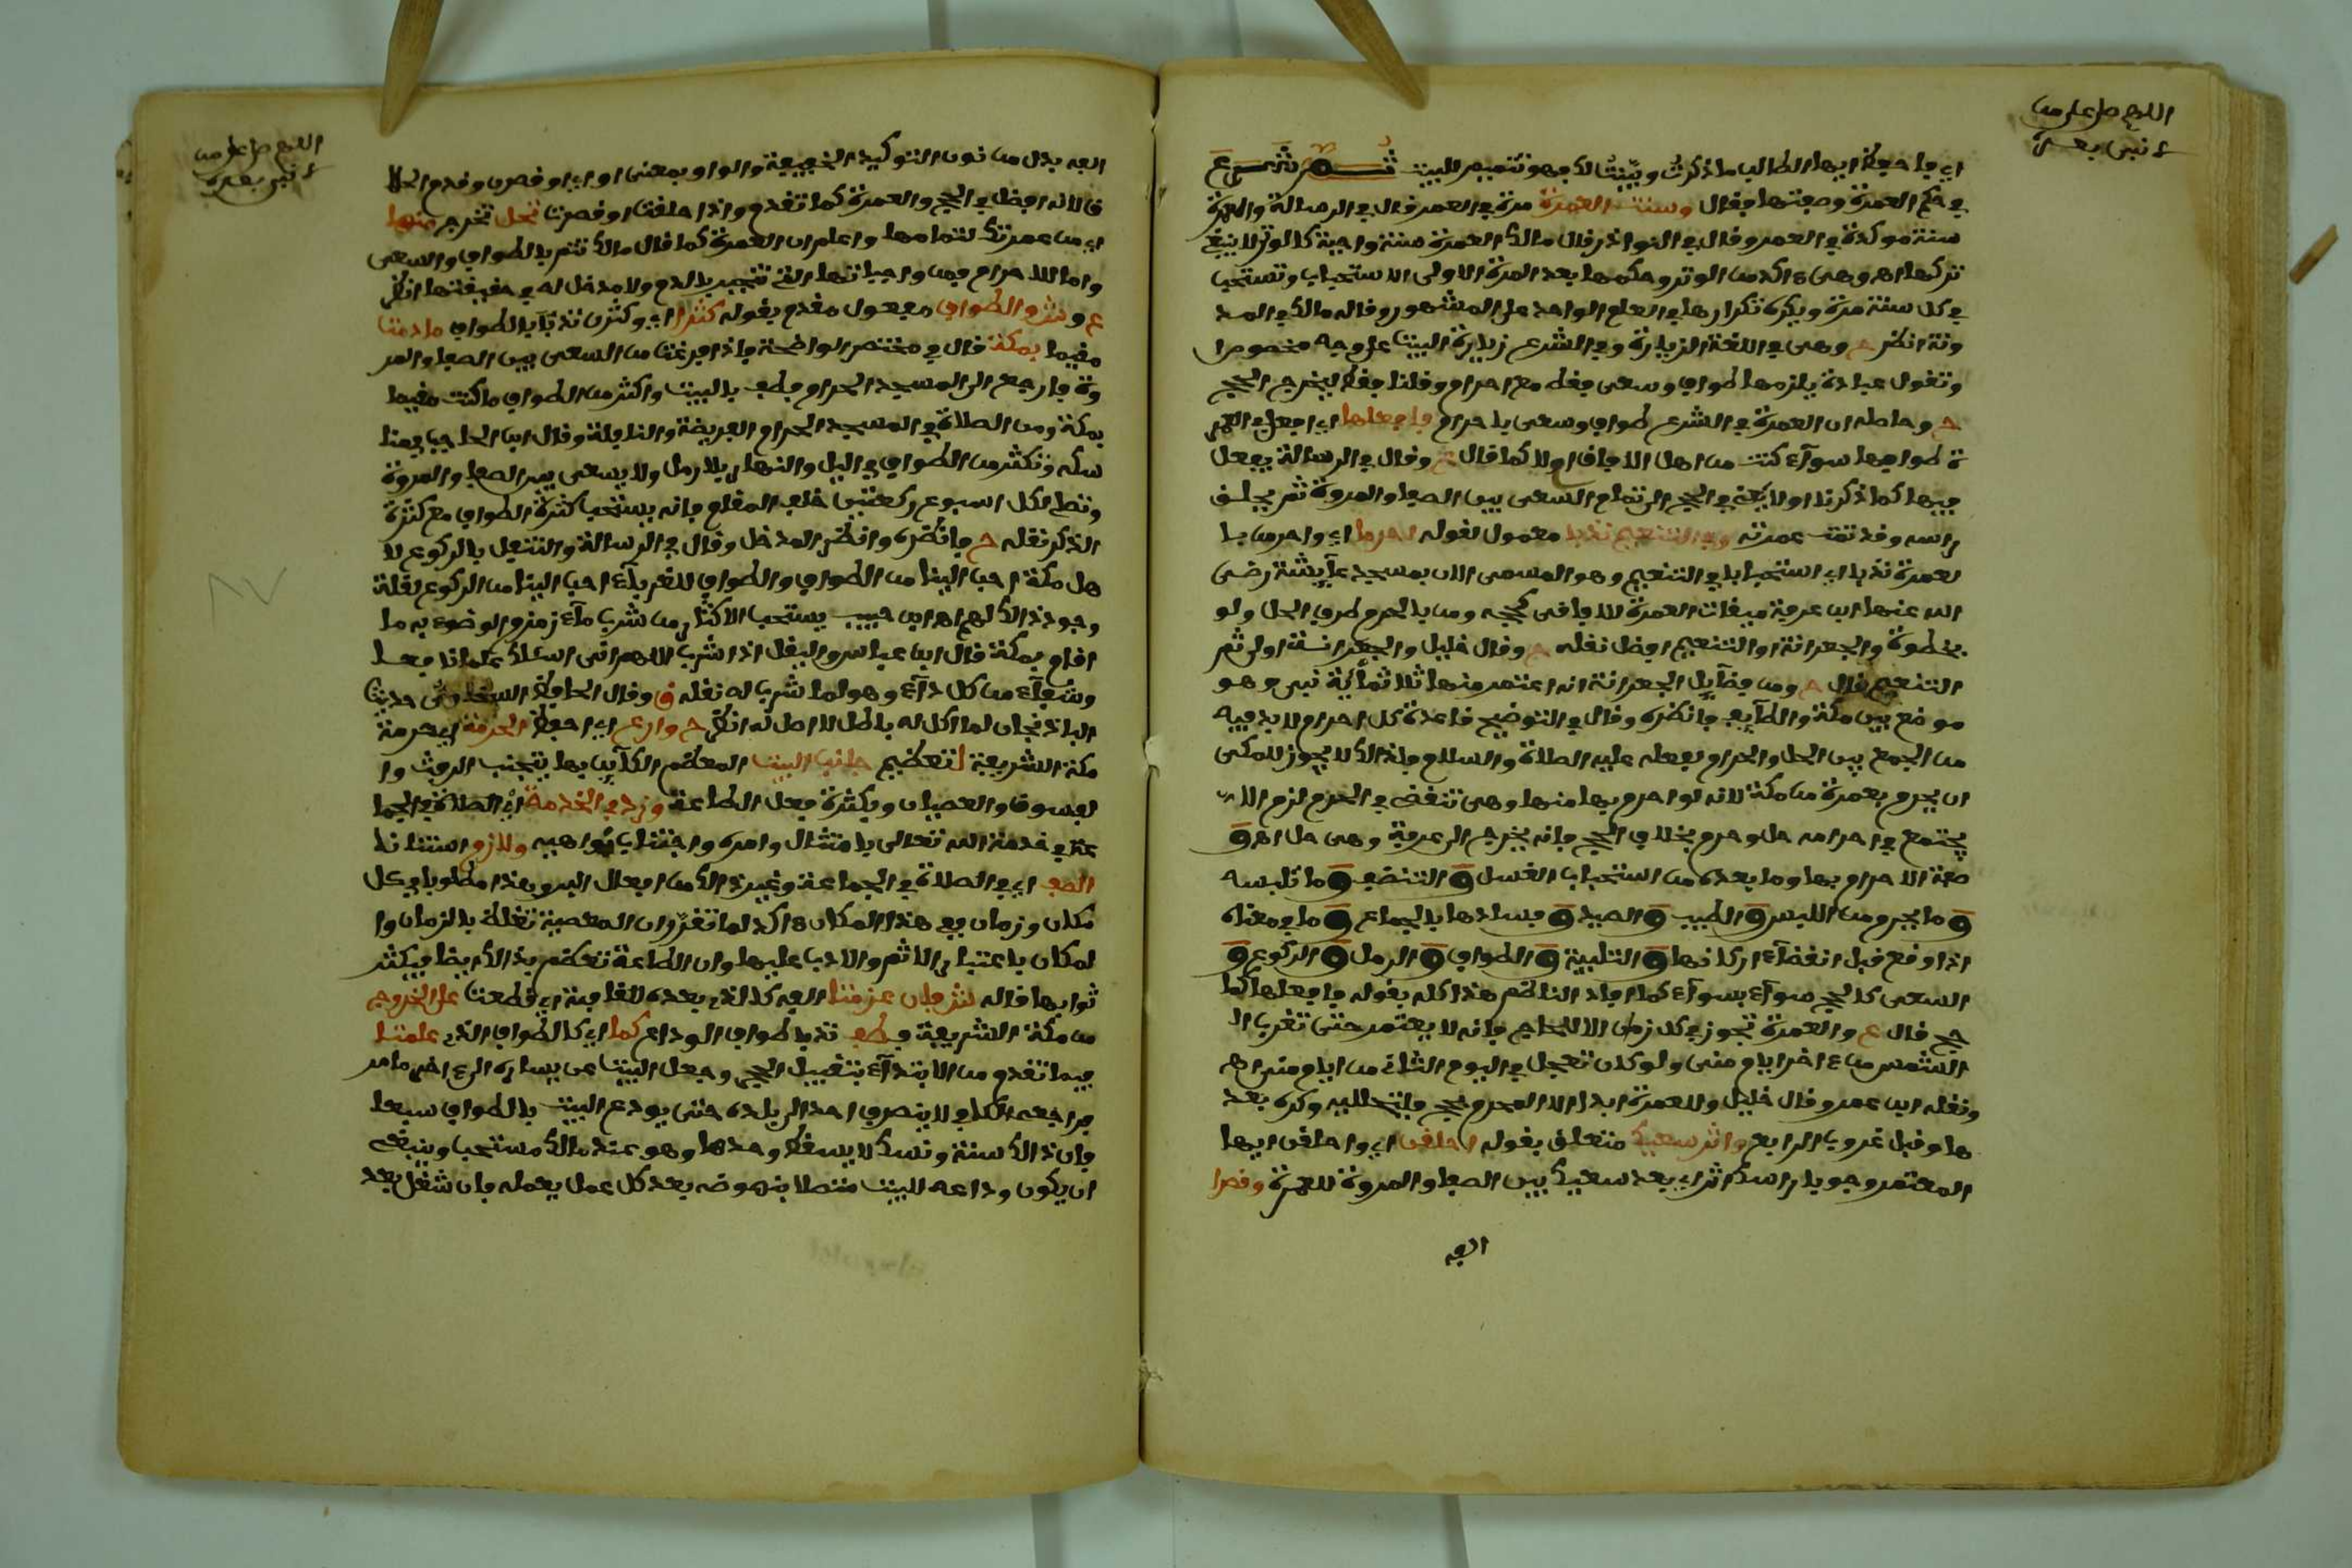 اللهم صل على من
لا نبي بعده
اي فاحفظ ايها الطالب ما ذكرت وبينت لك فهو تتميم للبيت ثم شرع
في حكم العمرة وصفتها فقال وسنت العمرة مرة في العمر قال في الرسالة والعمرة
سنة موكدة في العمر وقال في النوادر قال مالك العمرة سنة واجبة كالوتر لا ينبغي
تركها اه وهي ءاكد من الوتر وحكمها بعد المرة الاولى الاستحباب وتستحب
في كل سنة مرة ويكره تكرارها في العام الواحد على المشهور وقاله مالك في المد
ونة انظر ح وهي في اللغة الزيارة وفي الشرع زيارة البيت على وجه مخصوص ا
وتقول عبادة يلزمها طواف وسعي فقط مع احرام وقلنا فقط ليخرج الحج
ح وحاصله ان العمرة في الشرع طواف وسعي باحرام فافعلها اي افعل العمر
ة طوافها سوآء كنت من اهل الافاق او لا كما قال وقال في الرسالة يفعل
فيها كما ذكرنا اولا يعني في الحج الى تمام السعي بين الصفا والمروة ثم يحلق
راسه وقد تمت عمرته وفي التنعيم ندبا معمول لقوله احرما اي واحرمن با
لعمرة ندبا اي استحبابا في التنعيم وهو المسمى الان بمسجد عآيشة رضي
الله عنها ابن عرفة ميقات العمرة للافاقي كحجه ومن بالحرم طرف الحل ولو
بخطوة والجعرانة او التنعيم افضل نقله ح وقال خليل والجعرانة اولى ثم
التنعيم قال ح ومن فضآيل الجعرانة انه اعتمر منها ثلاثمائة نبي وهو
موضع بين مكة والطآيف فانظره وقال في التوضيح قاعدة كل احرام لا بد فيه
من الجمع بين الحل والحرام لفعله عليه الصلاة والسلام فلذلك لا يجوز للمكي
ان يحرم بعمرة من مكة لانه لو احرم بها منها وهي تنقضي في الحرم لزم الا
يجتمع في احرامه حل وحرم بخلاف الحج فانه يخرج الى عرفة وهي حل اه و
صفة الاحرام بها وما بعده من استحباب الغسل و التنضف و ما تلبسه
و ما يحرم من اللبس و الطيب و الصيد و فسادها بالجماع و ما في معناه
اذا وقع قبل انقضآء اركانها و التلبية و الطواف و الرمل و الركوع و
السعي كالحج سوآء بسوآء كما افاد الناظم هذا كله بقوله فافعلها كما
حج قال ع والعمرة تجوز في كل زمان الا للحاج فانه لا يعتمر حتى تغرب ا
الشمس من ءاخر ايام منى ولو كان تعجل في اليوم الثاني من ايام منى اه
ونقله ابن عمر وقال خليل وللعمرة ابدا الا المحرم بحج فلتحلله وكره بعد
ها وقبل غروب الرابع واثر سعيك متعلق بقوله احلقن اي واحلقن ايها
المعتمر وجوبا راسك اثر اي بعد سعيك بين الصفا والمروة للعمرة وقصرا
الفه
اللهم صل على من
لا نبي بعده
الفه بدل من نون التوكيد الخفيفة والواو بمعنى او اي او قصرن وقدم الحلا
ق لانه افضل في الحج والعمرة كما تقدم واذا حلقت او قصرت تحل تخرج منها
اي من عمرتك لتمامها واعلم ان العمرة كما قال مالك تتم بالطواف والسعي
واما الاحرام فمن واجباتها التي تنجبر بالدم ولا مدخل له في حقيقتها انظر
ع وشر والطواف مفعول مقدم بقوله كثرا اي وكثرن ندبا بالطواف ما دمت
مقيما بمكة قال في مختصر الواضحة فاذا فرغت من السعي بين الصفا والمر
وة فارجع الى المسجد الحرام فطف بالبيت واكثر من الطواف ما كنت مقيما
بمكة ومن الصلاة في المسجد الحرام الفريضة والنافلة وقال ابن الحاجب في منا
سكه وتكثر من الطواف في اليل والنهار بلا رمل ولا يسعى بين الصفا والمروة
وتصلي لكل اسبوع ركعتين خلف المقام فانه يستحب كثرة الطواف مع كثرة
الذكر نقله ح فانظره وانظر المدخل وقال في الرسالة والتنفل بالركوع لا
هل مكة احب الينا من الطواف والطواف للغربآء احب الينا من الركوع لقلة
وجود ذلك لهم اه ابن حبيب يستحب الاكثار من شرب مآء زمزم والوضوء به ما
اقام بمكة قال ابن عباس وليقل اذا شرب اللهم اني اسئلك علما نافعا
وشفآء من كل دآء وهو لما شرب له نقله ق وقال الحافظ السخاوي حديث
الباذنجان لما اكل له باطل لا اصل له انظر ح وارع اي احفظ الحرمة اي حرمة
مكة الشريفة لتعظيم جانب البيت المعظم الكآين بها بتجنب الرفث وا
لفسوق والعصيان وبكثرة فعل الطاعة وزد في الخدمة اي الصلاة في الجما
عة في خدمة الله تعالى بامتثال وامره واجتناب نواهيه ولازم استنانا
الصف اي في الصلاة في الجماعة وغير ذلك من افعال البر وهذا مطلوب في كل
مكان وزمان ففي هذا المكان ءاكد لما تقرر ان المعصية تغلظ بالزمان وا
لمكان باعتبار الاثم والادب عليها وان الطاعة تعظم بذلك ايضا فيكثر
ثوابها قاله شر فان عزمت الفه كالذي بعده للقافية اي قطعت على الخروج
من مكة الشريفة فطف ندبا طواف الوداع كما اي كالطواف الذي علمتا
فيما تقدم من الابتدآء بتقبيل الحجر وجعل البيت عن يساره الى ءاخر ما مر
فراجعه الكافي لا ينصرف احد الى بلده حتى يودع البيت بالطواف سبعا
فان ذلك سنة ونسك لا يسقط وحدها وهو عند مالك مستحب وينبغي
ان يكون وداعه للبيت متصلا بنهوضه بعد كل عمل يعمله فان شغل بعد